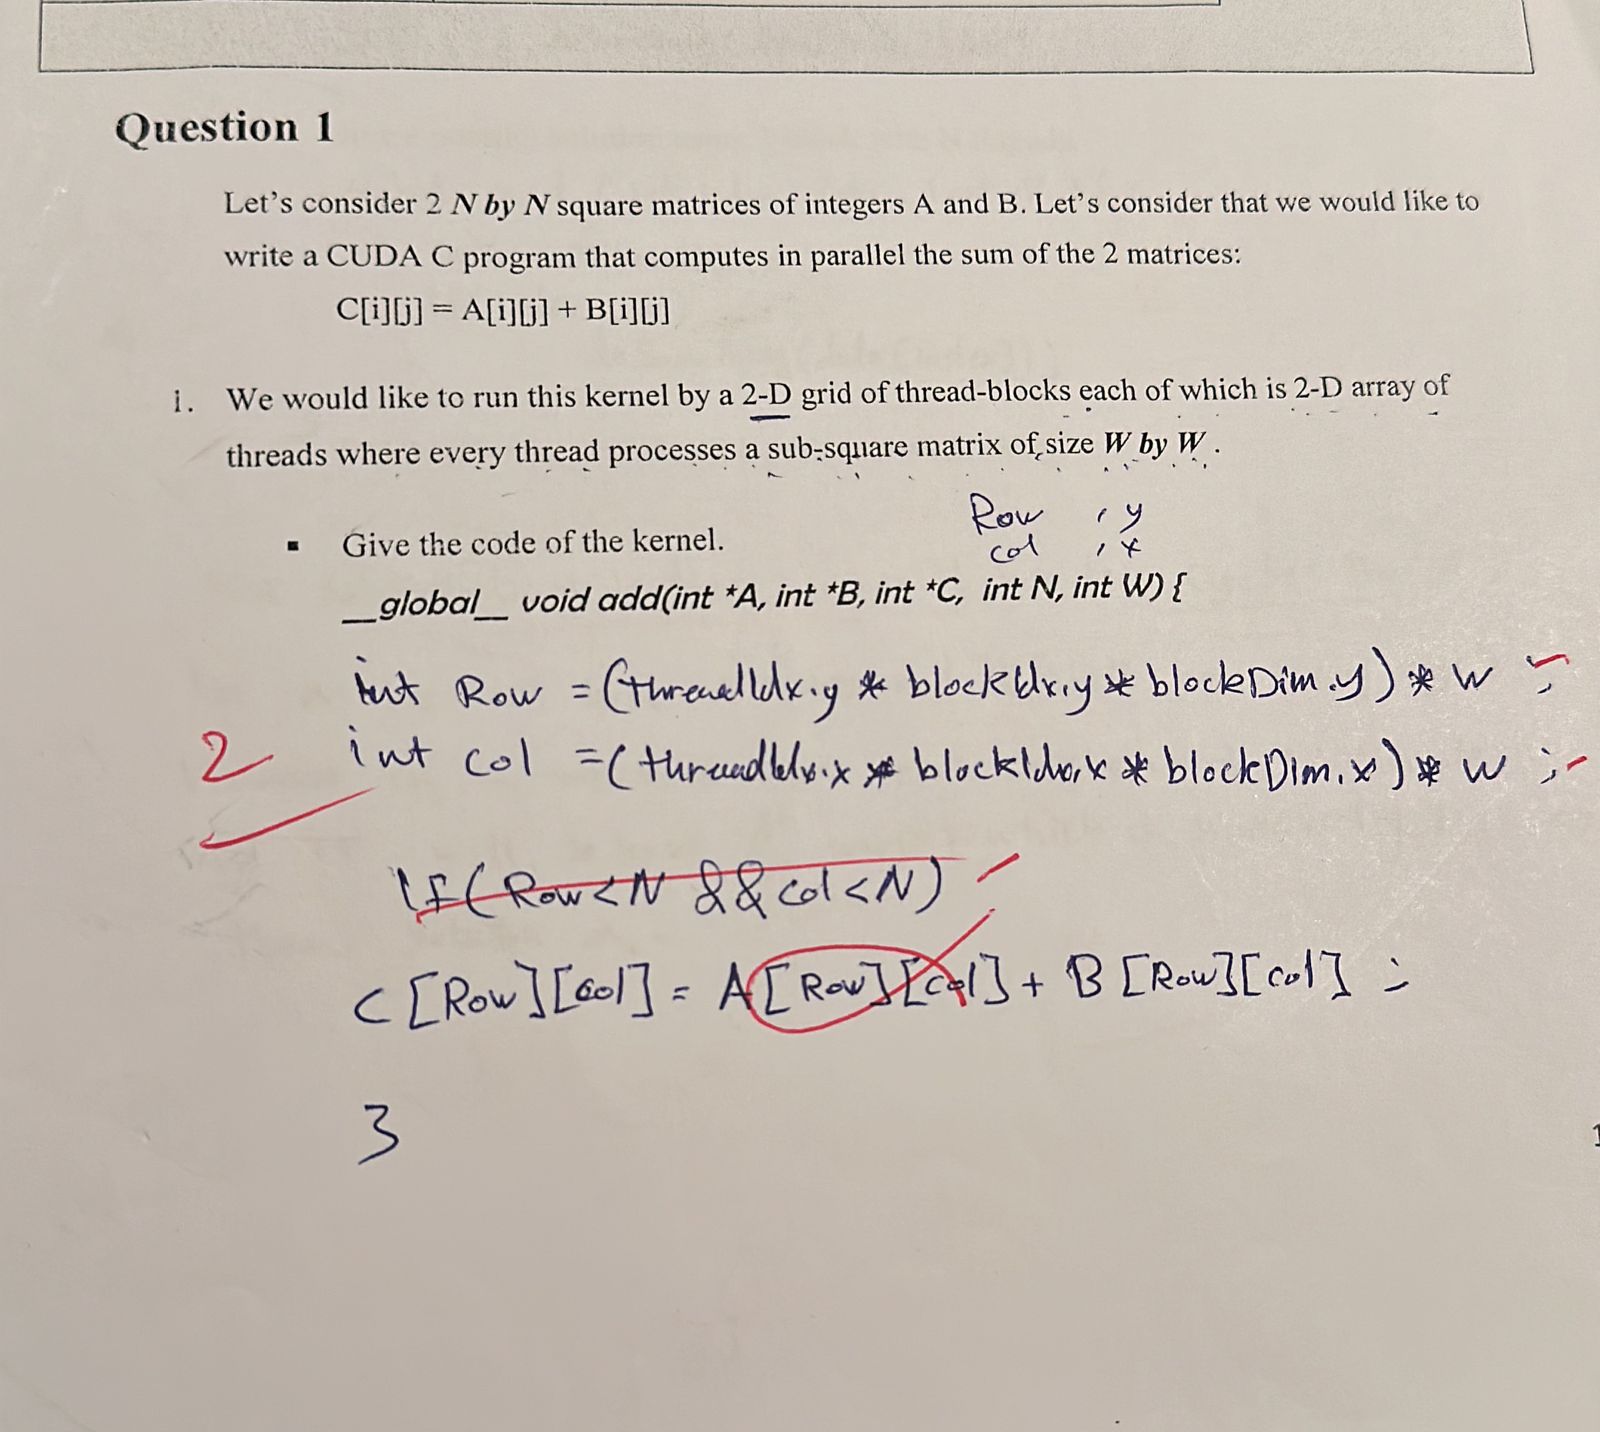 Question 1
Let's consider 2 N by N square matrices of integers A and B. Let's consider that we would like to
write a CUDA C program that computes in parallel the sum of the 2 matrices:
C[i][j] = A[i][j] + B[i][j]
i. We would like to run this kernel by a 2-D grid of thread-blocks each of which is 2-D array of
threads where every thread processes a sub-square matrix of size W by W.
Row , y
col , x
▪ Give the code of the kernel.
__global__ void add(int *A, int *B, int *C, int N, int W) {
int Row = (threadIdx.y * blockIdx.y * blockDim.y) * W ;
2
int col = (threadIdx.x * blockIdx.x * blockDim.x) * W ;
If (Row < N && col < N)
C [Row][col] = A [Row][col] + B [Row][col] ;
}
1